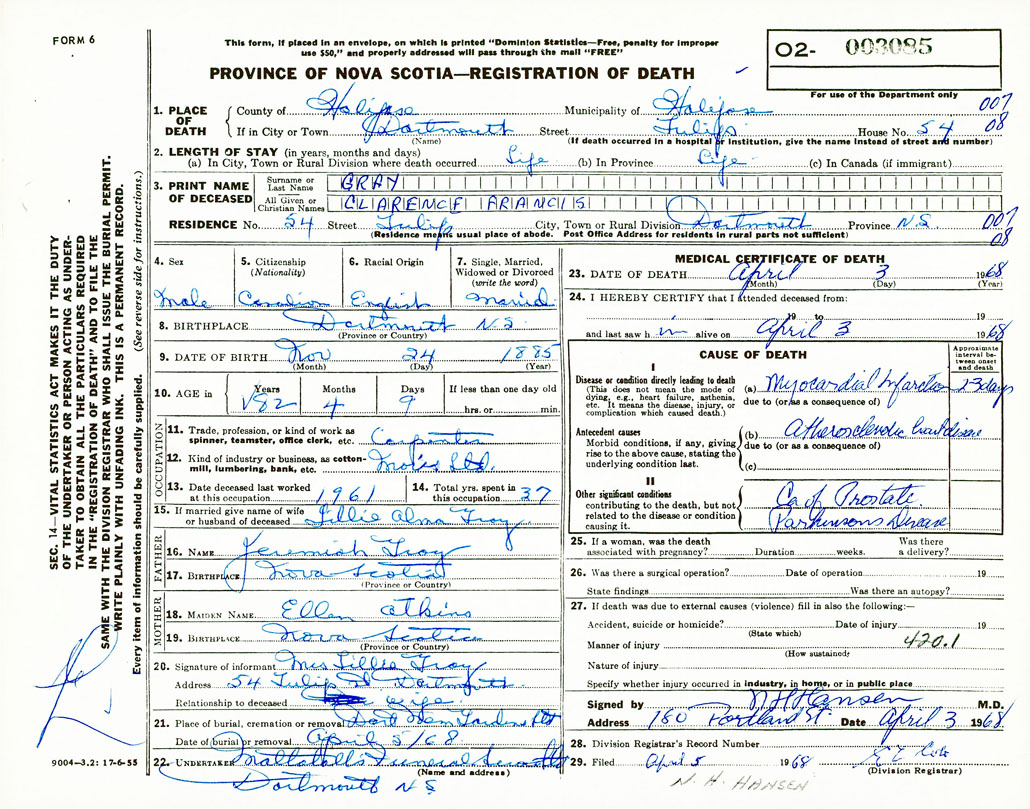 FORM 6
This form, if placed in an envelope, on which is printed "Dominion Statistics—Free, penalty for improper
use $50," and properly addressed will pass through the mail "FREE"
PROVINCE OF NOVA SCOTIA—REGISTRATION OF DEATH
O2- 003085
For use of the Department only
SEC. 14—VITAL STATISTICS ACT MAKES IT THE DUTY
OF THE UNDERTAKER OR PERSON ACTING AS UNDER-
TAKER TO OBTAIN ALL THE PARTICULARS REQUIRED
IN THE "REGISTRATION OF DEATH" AND TO FILE THE
SAME WITH THE DIVISION REGISTRAR WHO SHALL ISSUE THE BURIAL PERMIT.
WRITE PLAINLY WITH UNFADING INK. THIS IS A PERMANENT RECORD.
Every item of information should be carefully supplied. (See reverse side for instructions.)
1. PLACE OF DEATH County of Halifax Municipality of Halifax 007
If in City or Town Dartmouth Street Tulip House No. 54 08
(Name) (If death occurred in a hospital or institution, give the name instead of street and number)
2. LENGTH OF STAY (in years, months and days)
(a) In City, Town or Rural Division where death occurred Life (b) In Province Life (c) In Canada (if immigrant)
3. PRINT NAME OF DECEASED Surname or Last Name GRAY
All Given or Christian Names CLARENCE FRANCIS
RESIDENCE No. 54 Street Tulip City, Town or Rural Division Dartmouth Province N.S 007
(Residence means usual place of abode. Post Office Address for residents in rural parts not sufficient) 08
4. Sex 5. Citizenship (Nationality) 6. Racial Origin 7. Single, Married, Widowed or Divorced (write the word)
Male Canadian English Married
8. BIRTHPLACE Dartmouth N.S.
(Province or Country)
9. DATE OF BIRTH Nov 24 1885
(Month) (Day) (Year)
10. AGE in Years Months Days If less than one day old
82 4 9 hrs. or min.
OCCUPATION
11. Trade, profession or kind of work as
spinner, teamster, office clerk, etc. Carpenter
12. Kind of industry or business, as cotton-
mill, lumbering, bank, etc. Ltd.
13. Date deceased last worked at this occupation 1961 14. Total yrs. spent in this occupation 37
15. If married give name of wife
or husband of deceased Lillie Alma Gray
FATHER
16. NAME Jeremiah Gray
17. BIRTHPLACE Nova Scotia
(Province or Country)
MOTHER
18. MAIDEN NAME Ellen Atkins
19. BIRTHPLACE Nova Scotia
(Province or Country)
20. Signature of informant Mrs Lillie Gray
Address 54 Tulip St Dartmouth
Relationship to deceased wife
21. Place of burial, cremation or removal Dart Mem Gardens
Date of burial or removal April 5/68
22. UNDERTAKER Mattatall's Funeral
(Name and address)
Dartmouth N S
9004—3.2: 17-6-55
MEDICAL CERTIFICATE OF DEATH
23. DATE OF DEATH April 3 1968
(Month) (Day) (Year)
24. I HEREBY CERTIFY that I attended deceased from:
19 to 19
and last saw him alive on April 3 1968
CAUSE OF DEATH
Approximate interval between onset and death
I
Disease or condition directly leading to death
(This does not mean the mode of
dying, e.g., heart failure, asthenia,
etc. It means the disease, injury, or
complication which caused death.)
(a) Myocardial Infarction 23 days
due to (or as a consequence of)
Antecedent causes
Morbid conditions, if any, giving
rise to the above cause, stating the
underlying condition last.
(b) Atherosclerotic heart disease
due to (or as a consequence of)
(c)
II
Other significant conditions
contributing to the death, but not
related to the disease or condition
causing it.
Ca of Prostate
Parkinsons Disease
25. If a woman, was the death Was there
associated with pregnancy? Duration weeks. a delivery?
26. Was there a surgical operation? Date of operation 19
State findings Was there an autopsy?
27. If death was due to external causes (violence) fill in also the following:—
Accident, suicide or homicide? Date of injury 19
(State which)
Manner of injury 420.1
(How sustained)
Nature of injury
Specify whether injury occurred in industry, in home, or in public place
Signed by N H Hansen M.D.
Address 180 Portland St. Date April 3 1968
28. Division Registrar's Record Number
29. Filed April 5 1968
(Division Registrar)
N. H. HANSEN